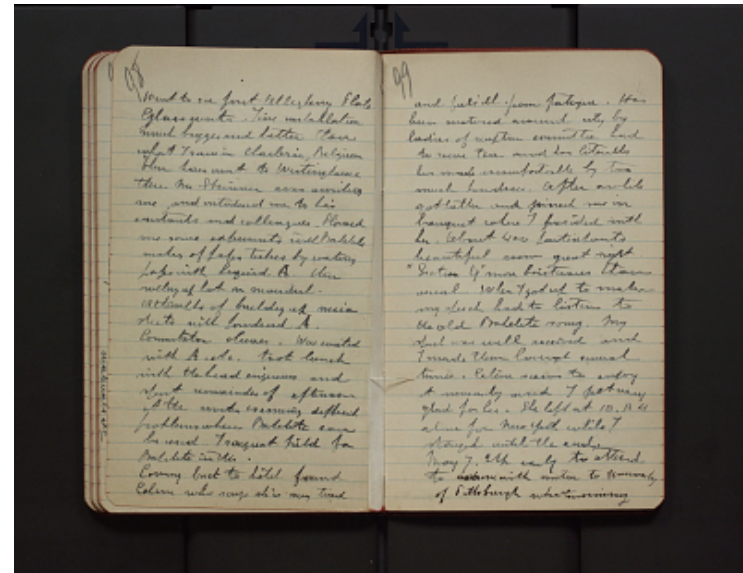 98
Went to see first Allegheny Plate
Glass works. Fine installation
much bigger and better than
what I saw in Charleroi, Belgium
Then went to Westinghouse
there Mr. was awaiting
me, and introduced me to his
assistants and colleagues. Showed
me some experiments with Bakelite
makes of paper tubes by coating
paper with liquid A. then
rolling it hot on mandrel.
methods of building up mica
sheets with powdered A.
Commutator sleeves. Was united
with A etc. Took lunch
with the head engineers and
spent remainder of afternoon
at the works examining different
problems where Bakelite can
be used. Tremendous field for
Bakelite in
Coming back to hotel found
Celine who says she is very tired
99
and fatigue. Has
been motored around city by
ladies of reception committee had
to
her made uncomfortable by too
much kindness. After a while
got better and joined us in
banquet where I presided with
her. About participants
beautiful room great night
"Section Q" more boisterous than
usual. When I got up to make
my speech had to listen to
the old Bakelite song. My
speech was well received and
I made them laugh several
times. Celine seems to enjoy
it and I felt very
glad for her. She left at 10.
alone for New York while I
stayed until the end.
May 7. Up early to attend
to with motor to University
of Pittsburgh where